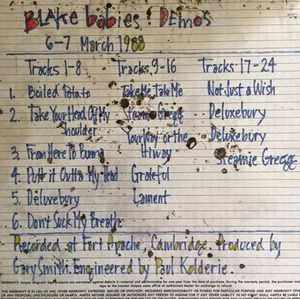 BLAKE BABIES DEMOS
6-7 March 1988
Tracks 1-8 Tracks 9-16 Tracks 17-24
1. Boiled Potato Take Me, Take Me Not Just a Wish
2. Take Your Head Off My Gregg Deluxebury
Shoulder Your Way or the Deluxebury
3. From Here To Burma Hiway Stephnie Gregg
4. Put it Outta My Head Grateful
5. Deluxebury Lament
6. Don't Suck My Breath
Recorded at Fort Apache, Cambridge. Produced by
Gary Smith. Engineered by Paul Kolderie.